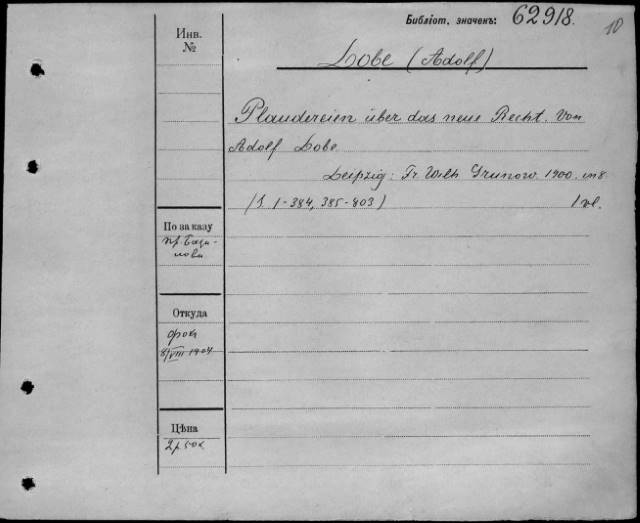 Библіот. значекъ: 62918.
10
Инв.
№
Lobe (Adolf)
Plaudereien über das neue Recht. Von
Adolf Lobe.
Leipzig: Fr. Wilh. Grunow. 1900. in 8.
(S. 1-384, 385-803) 1 vl.
По заказу
пр. База-
нова
Откуда
8/VIII 1904
Цѣна
2 р 50 к